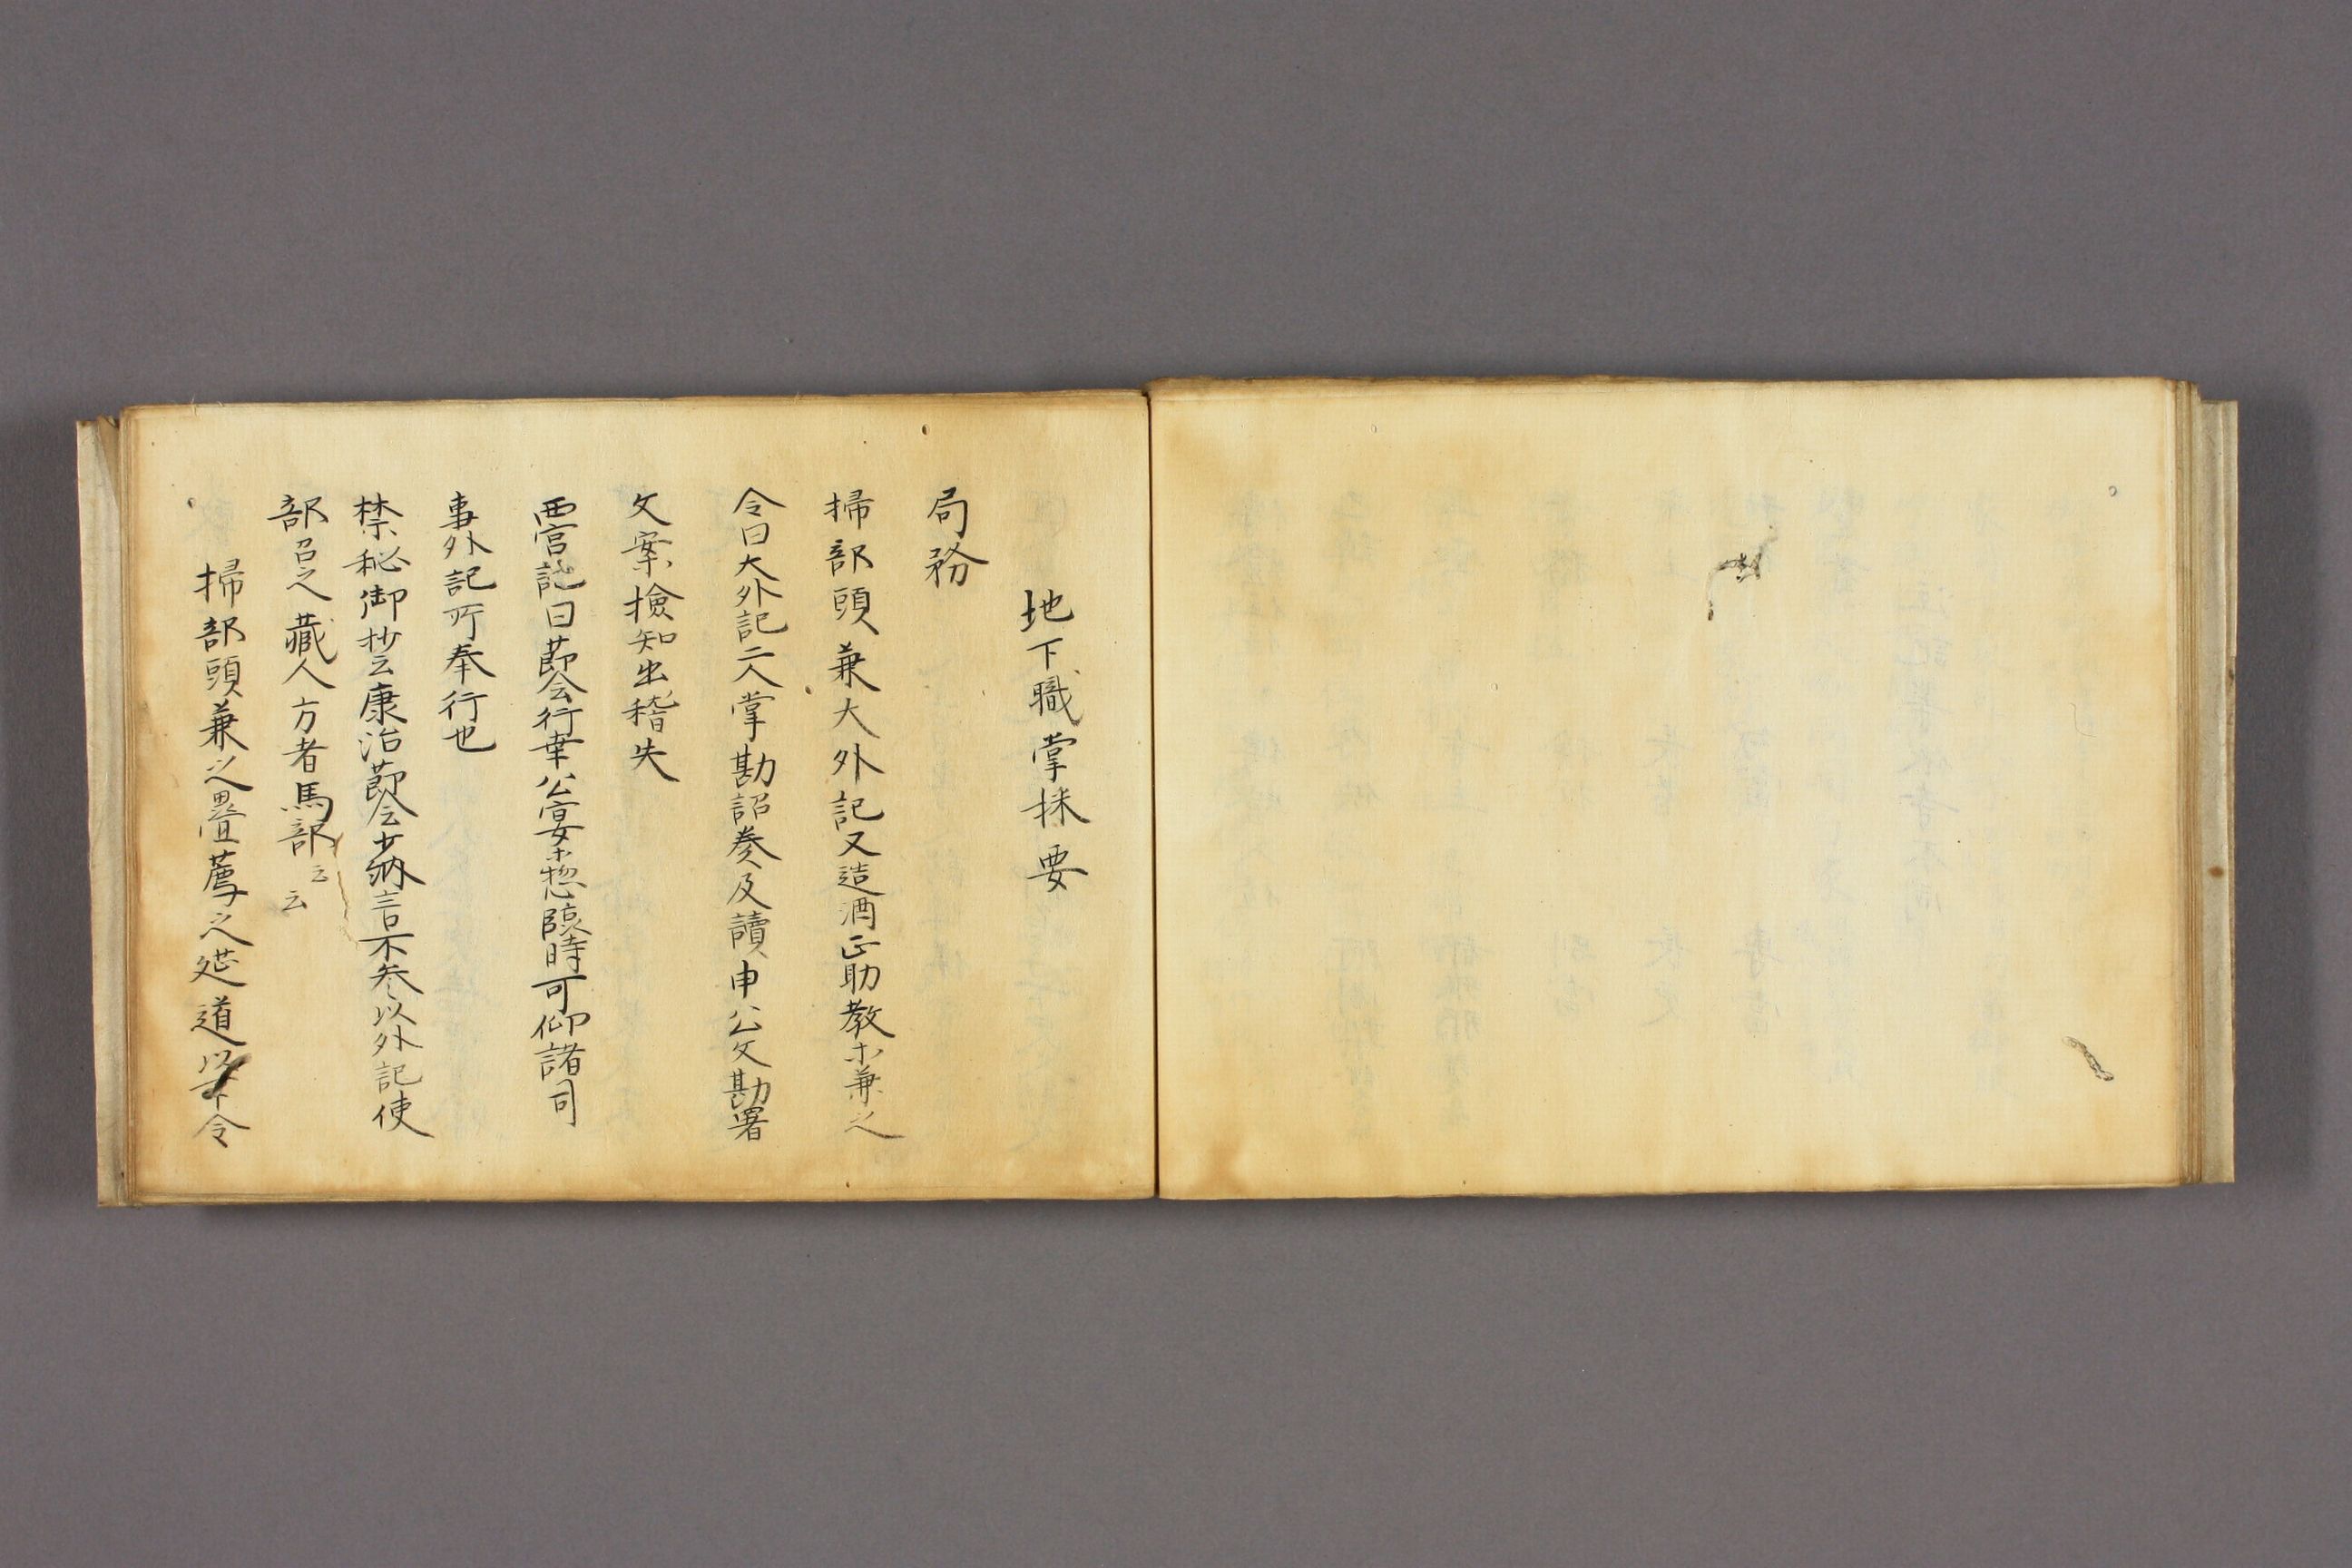 地下職掌採要
局務
掃部頭兼大外記又造酒正助教ホ兼之
令曰大外記二人掌勘詔奏及讀申公文勘署
文案撿知出稽失
西宮記曰莭会行幸公宴ホ惣臨時可仰諸司
事外記所奉行也
禁秘御抄云康治莭会少納言不参以外記使
部召之藏人方者馬部云云
掃部頭兼之疊薦之筵道ホ令